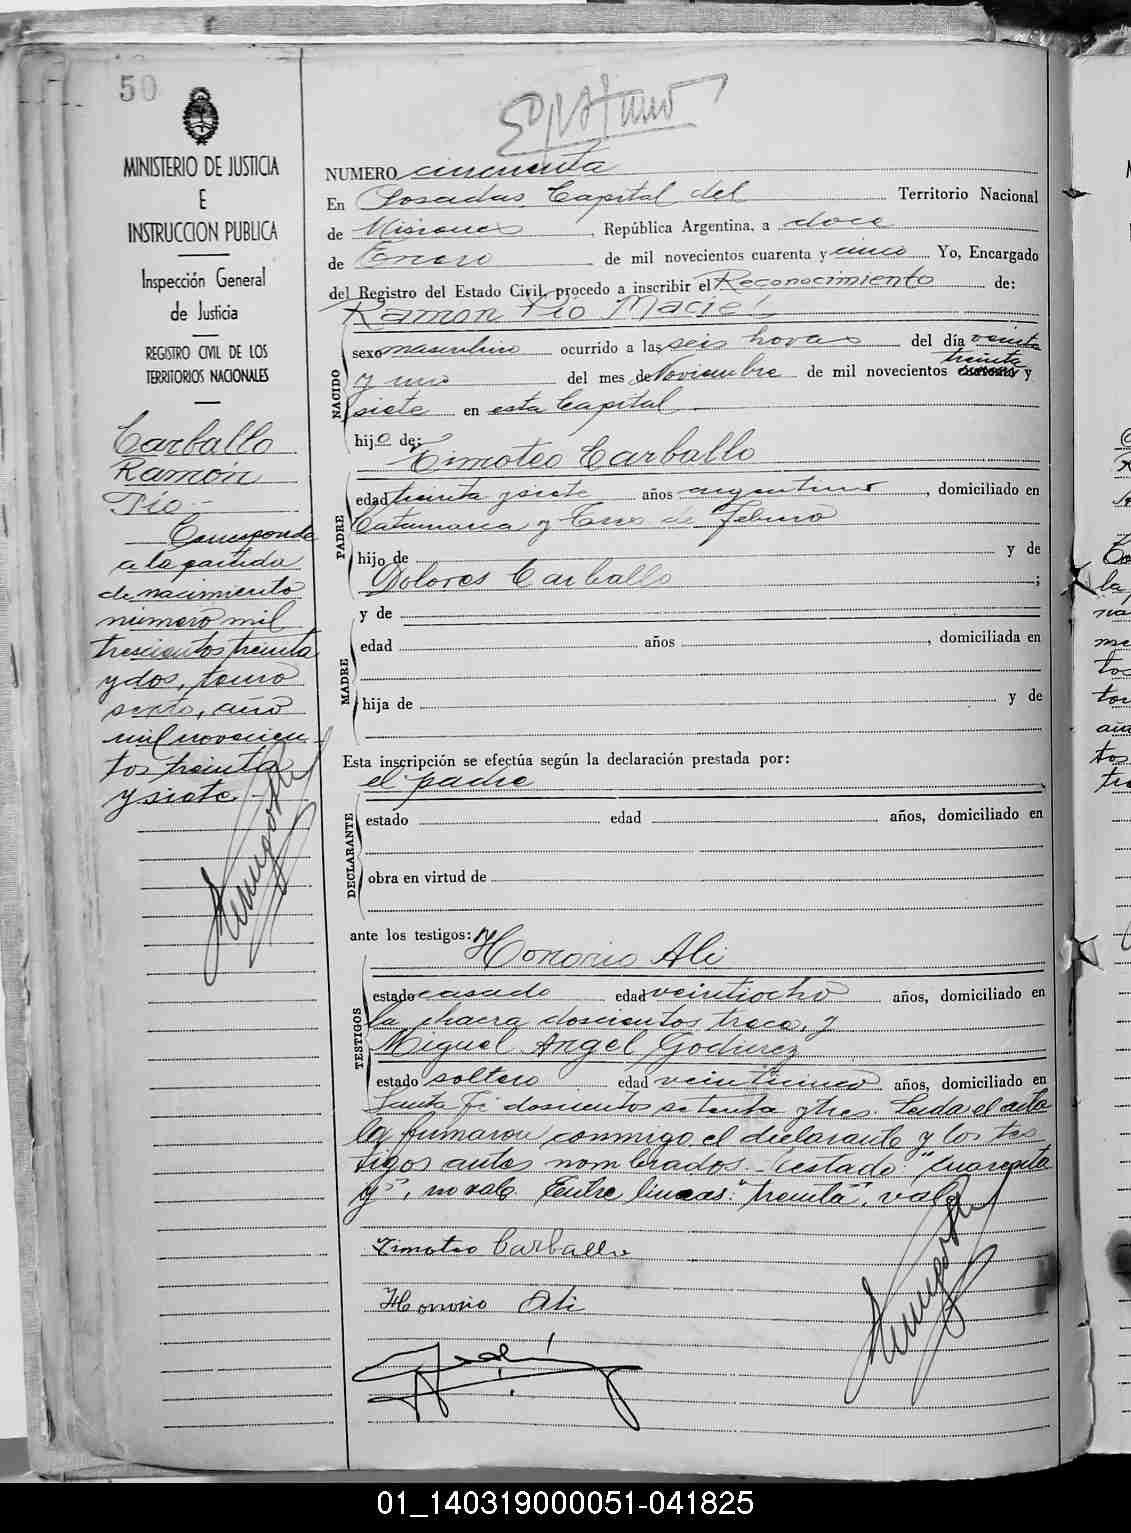 50
MINISTERIO DE JUSTICIA
E
INSTRUCCION PUBLICA
Inspección General
de Justicia
REGISTRO CIVIL DE LOS
TERRITORIOS NACIONALES
Carballo
Ramón
Pío.-
Corresponde
a la partida
de nacimiento
número mil
trescientos treinta
y dos, tomo
sexto, año
mil novecien
tos treinta
y siete.
NUMERO cincuenta
En Posadas Capital del Territorio Nacional
de Misiones, República Argentina, a doce
de Enero de mil novecientos cuarenta y cinco Yo, Encargado
del Registro del Estado Civil, procedo a inscribir el Reconocimiento de:
Ramon Pío Maciel
NACIDO
sexo masculino ocurrido a las seis horas del día veinte
treinta
y uno del mes de Noviembre de mil novecientos y
siete en esta Capital
hijo de:
Timoteo Carballo
PADRE
edad treinta y siete años argentino, domiciliado en
Catamarca y Tres de Febrero
hijo de y de
Dolores Carballo ;
MADRE
y de
edad años , domiciliada en
hija de y de
Esta inscripción se efectúa según la declaración prestada por:
el padre
DECLARANTE
estado edad años, domiciliado en
obra en virtud de
ante los testigos:
Honorio Ali
TESTIGOS
estado casado edad veintiocho años, domiciliado en
la chacra doscientos trece, y
Miguel Angel Godinez
estado soltero edad veinticinco años, domiciliado en
Santa Fé doscientos setenta y tres. Leida el acta
la firmaron conmigo el declarante y los tes
tigos antes nombrados.- Testado: "cuarenta
y", no vale. Entre lineas: "treinta", vale
Timoteo Carballo
Honorio Ali
01_140319000051-041825